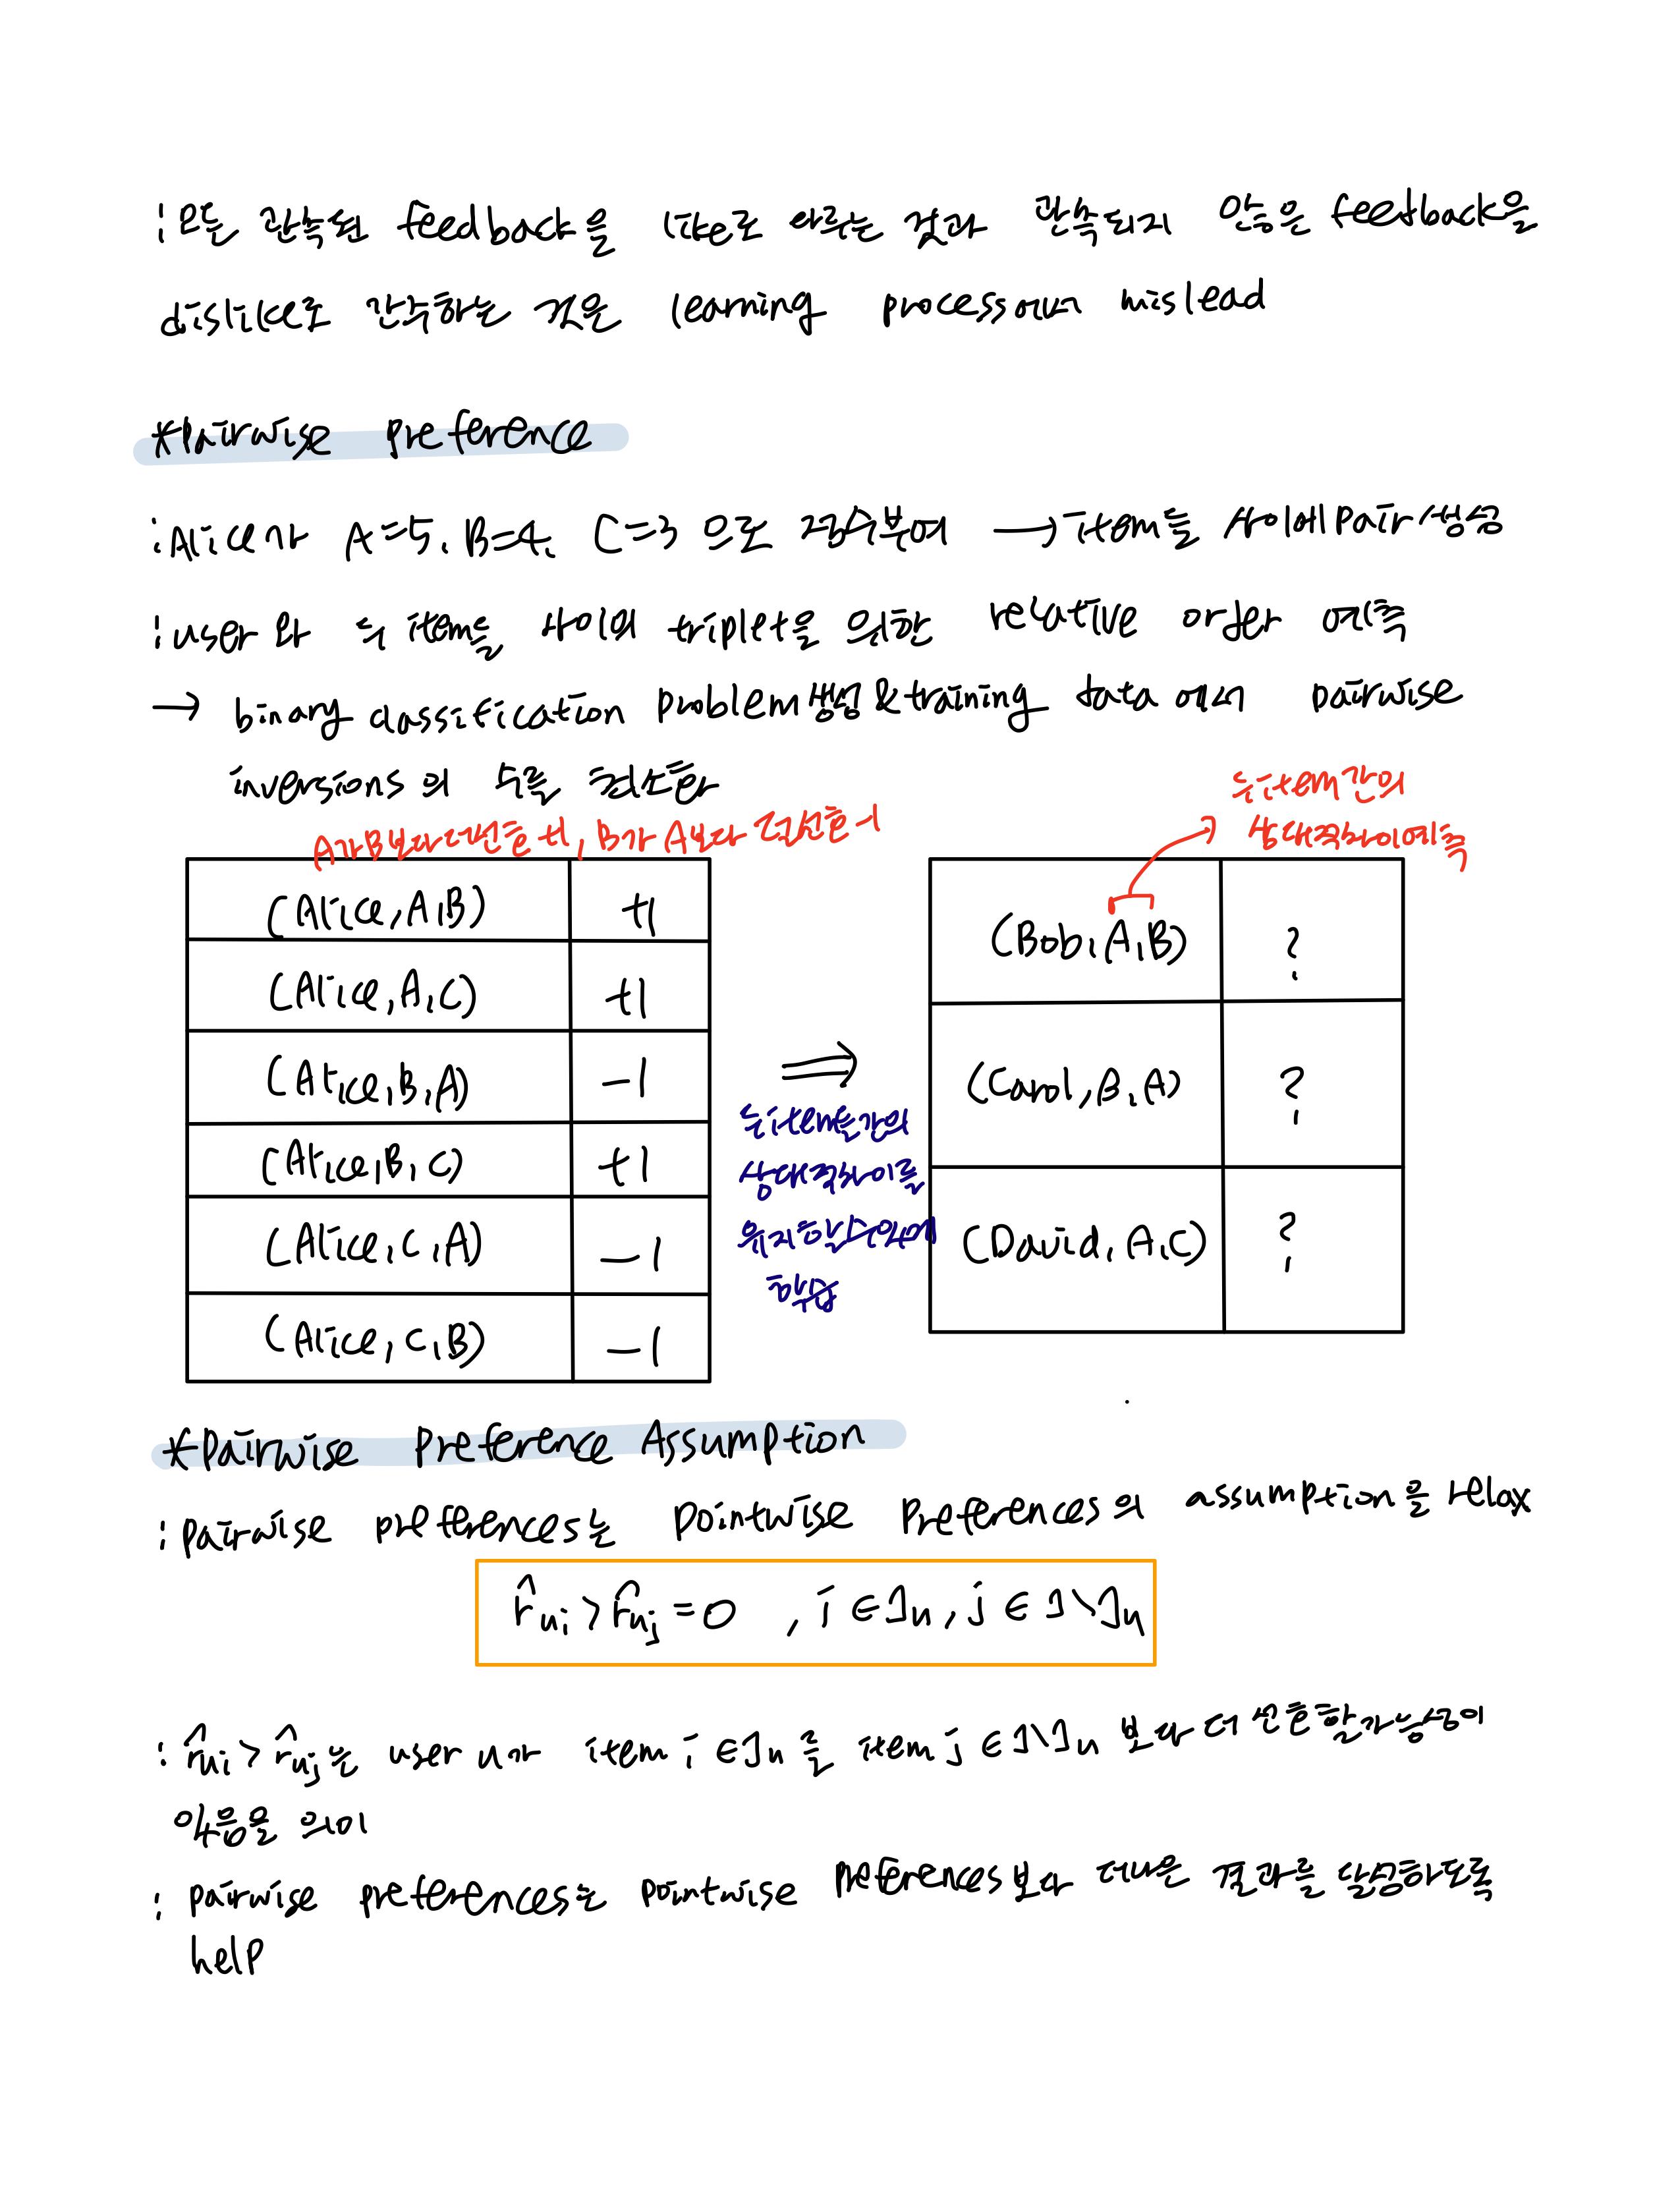 : 모든 관측된 feedback을 like로 다루는 것과 관측되지 않은 feedback을
dislike로 간주하는 것은 learning process에서 mislead
*Pairwise preference
: Alice가 A=5, B=4, C=3 으로 점수부여 → item들 사이에 pair 생성
: user와 두 item들 사이의 triplet을 의한 relative order 예측
→ binary classification problem 생성 & training data에서 pairwise
inversions의 수를 최소화
A가 B보다 더 선호 +1, B가 A보다 덜 선호 -1
두 item 간의
상대적 차이 예측
(Alice, A, B) +1
(Alice, A, C) +1
(Alice, B, A) -1
(Alice, B, C) +1
(Alice, C, A) -1
(Alice, C, B) -1
⇒
두 item들간의
상대적 차이를
유지할 수 있게
학습
(Bob, A, B) ?
(Carol, B, A) ?
(David, A, C) ?
*Pairwise Preference Assumption
: pairwise preferences는 pointwise preferences의 assumption을 relax
r̂ui > r̂uj = 0 , i ∈ Iu, j ∈ I\Iu
: r̂ui > r̂uj는 user u가 item i ∈ Iu를 item j ∈ I\Iu 보다 더 선호할 가능성이
있음을 의미
: pairwise preferences는 pointwise preferences보다 더 나은 결과를 달성하도록
help